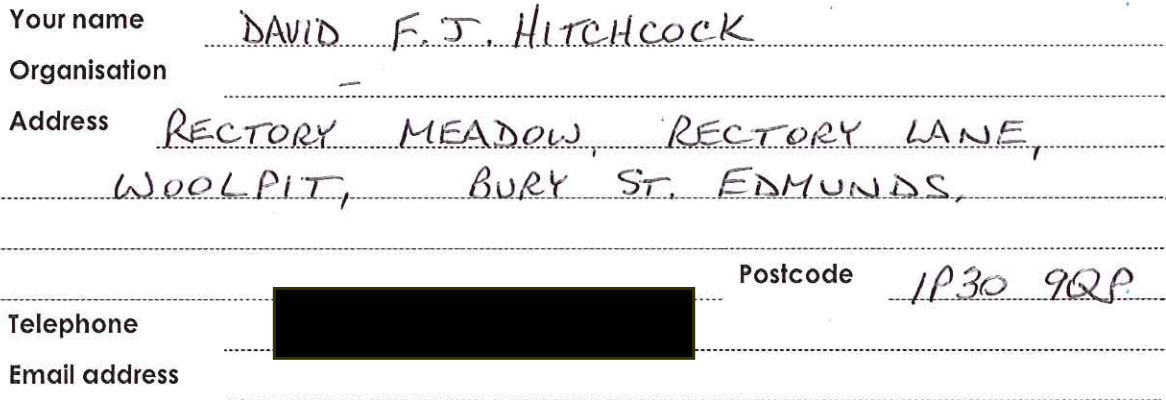 Your name DAVID F. J. HITCHCOCK
Organisation –
Address RECTORY MEADOW, RECTORY LANE,
WOOLPIT, BURY ST. EDMUNDS,
Postcode IP30 9QP
Telephone
Email address